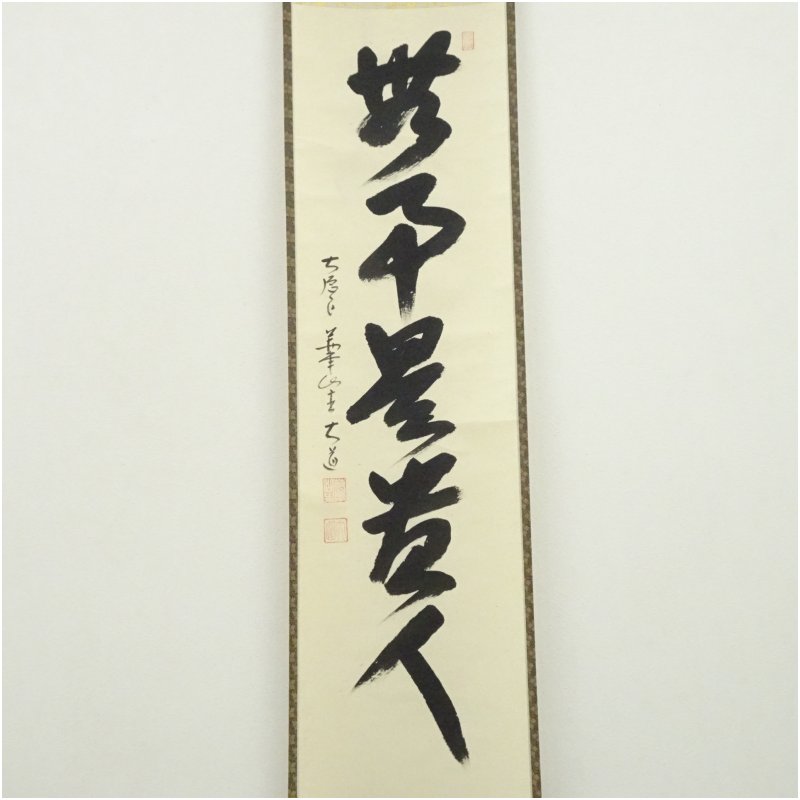 無事是貴人
大原山 華山主 大道